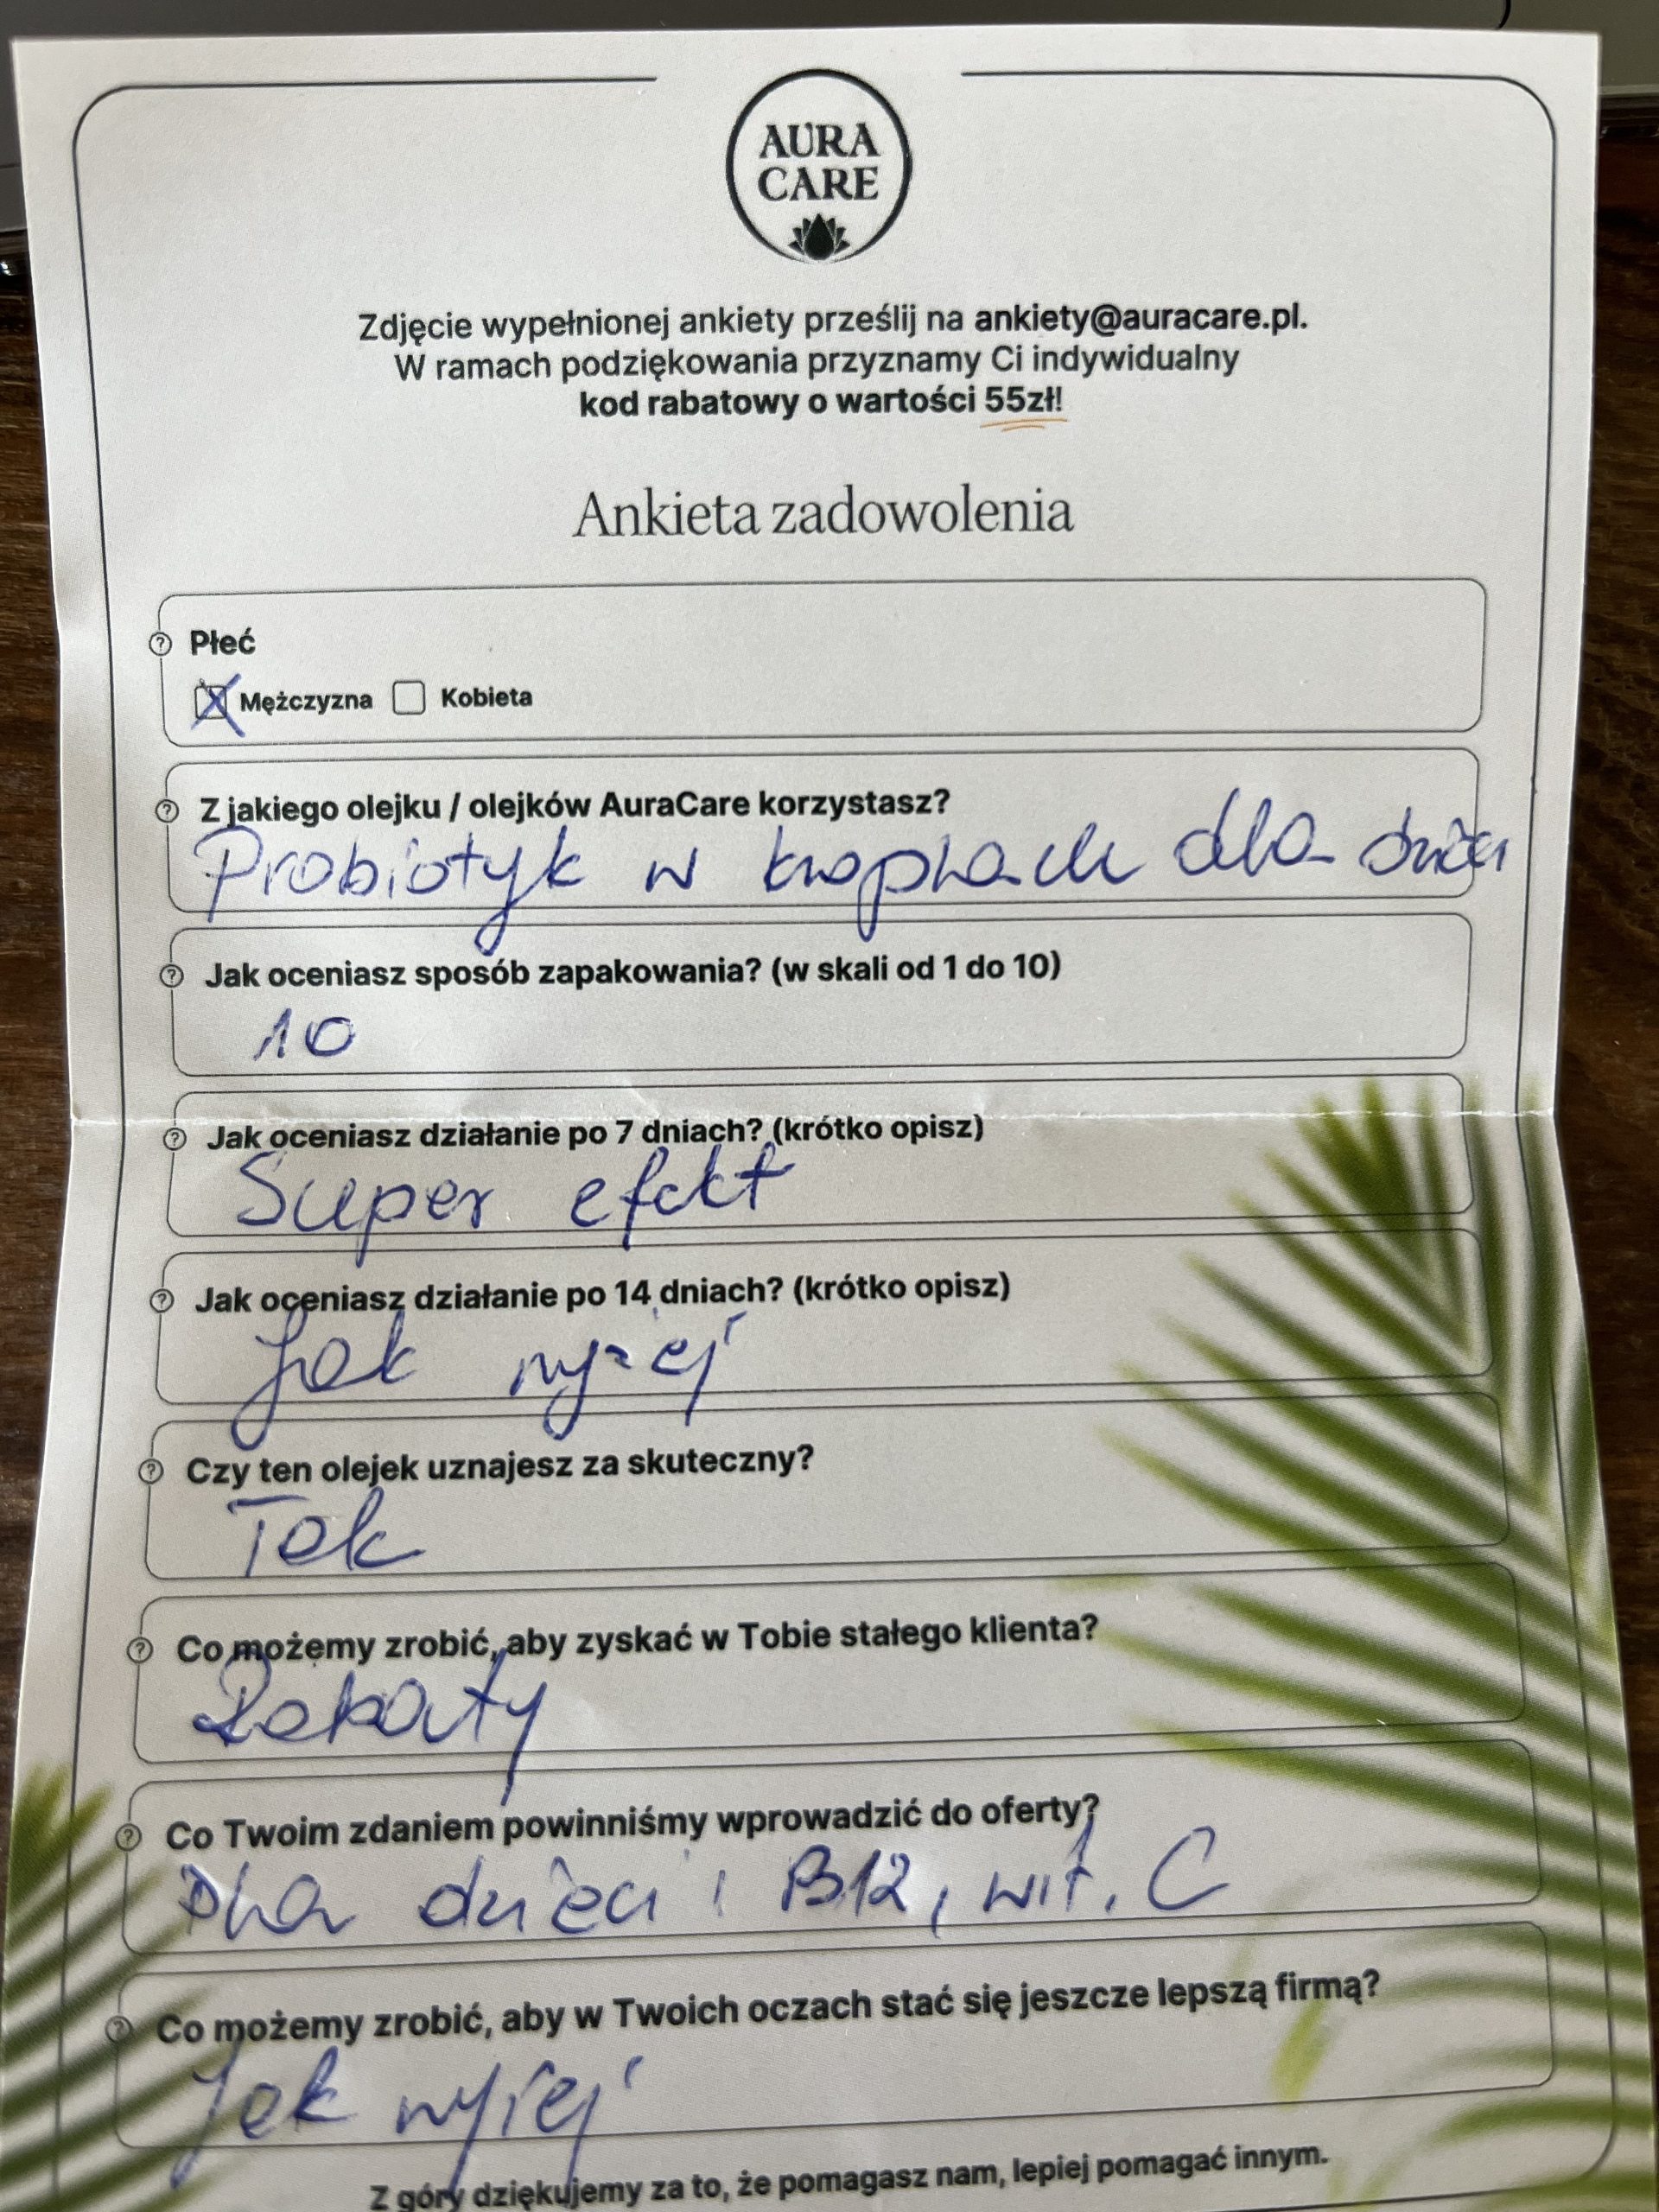 AURA
CARE
Zdjęcie wypełnionej ankiety prześlij na ankiety@auracare.pl.
W ramach podziękowania przyznamy Ci indywidualny
kod rabatowy o wartości 55zł!
Ankieta zadowolenia
Płeć
Mężczyzna Kobieta
Z jakiego olejku / olejków AuraCare korzystasz?
Probiotyk w kroplach dla dzieci
Jak oceniasz sposób zapakowania? (w skali od 1 do 10)
10
Jak oceniasz działanie po 7 dniach? (krótko opisz)
Super efekt
Jak oceniasz działanie po 14 dniach? (krótko opisz)
Jak wyżej
Czy ten olejek uznajesz za skuteczny?
Tak
Co możemy zrobić, aby zyskać w Tobie stałego klienta?
Rabaty
Co Twoim zdaniem powinniśmy wprowadzić do oferty?
Dla dzieci i B12, wit. C
Co możemy zrobić, aby w Twoich oczach stać się jeszcze lepszą firmą?
Jak wyżej
Z góry dziękujemy za to, że pomagasz nam, lepiej pomagać innym.